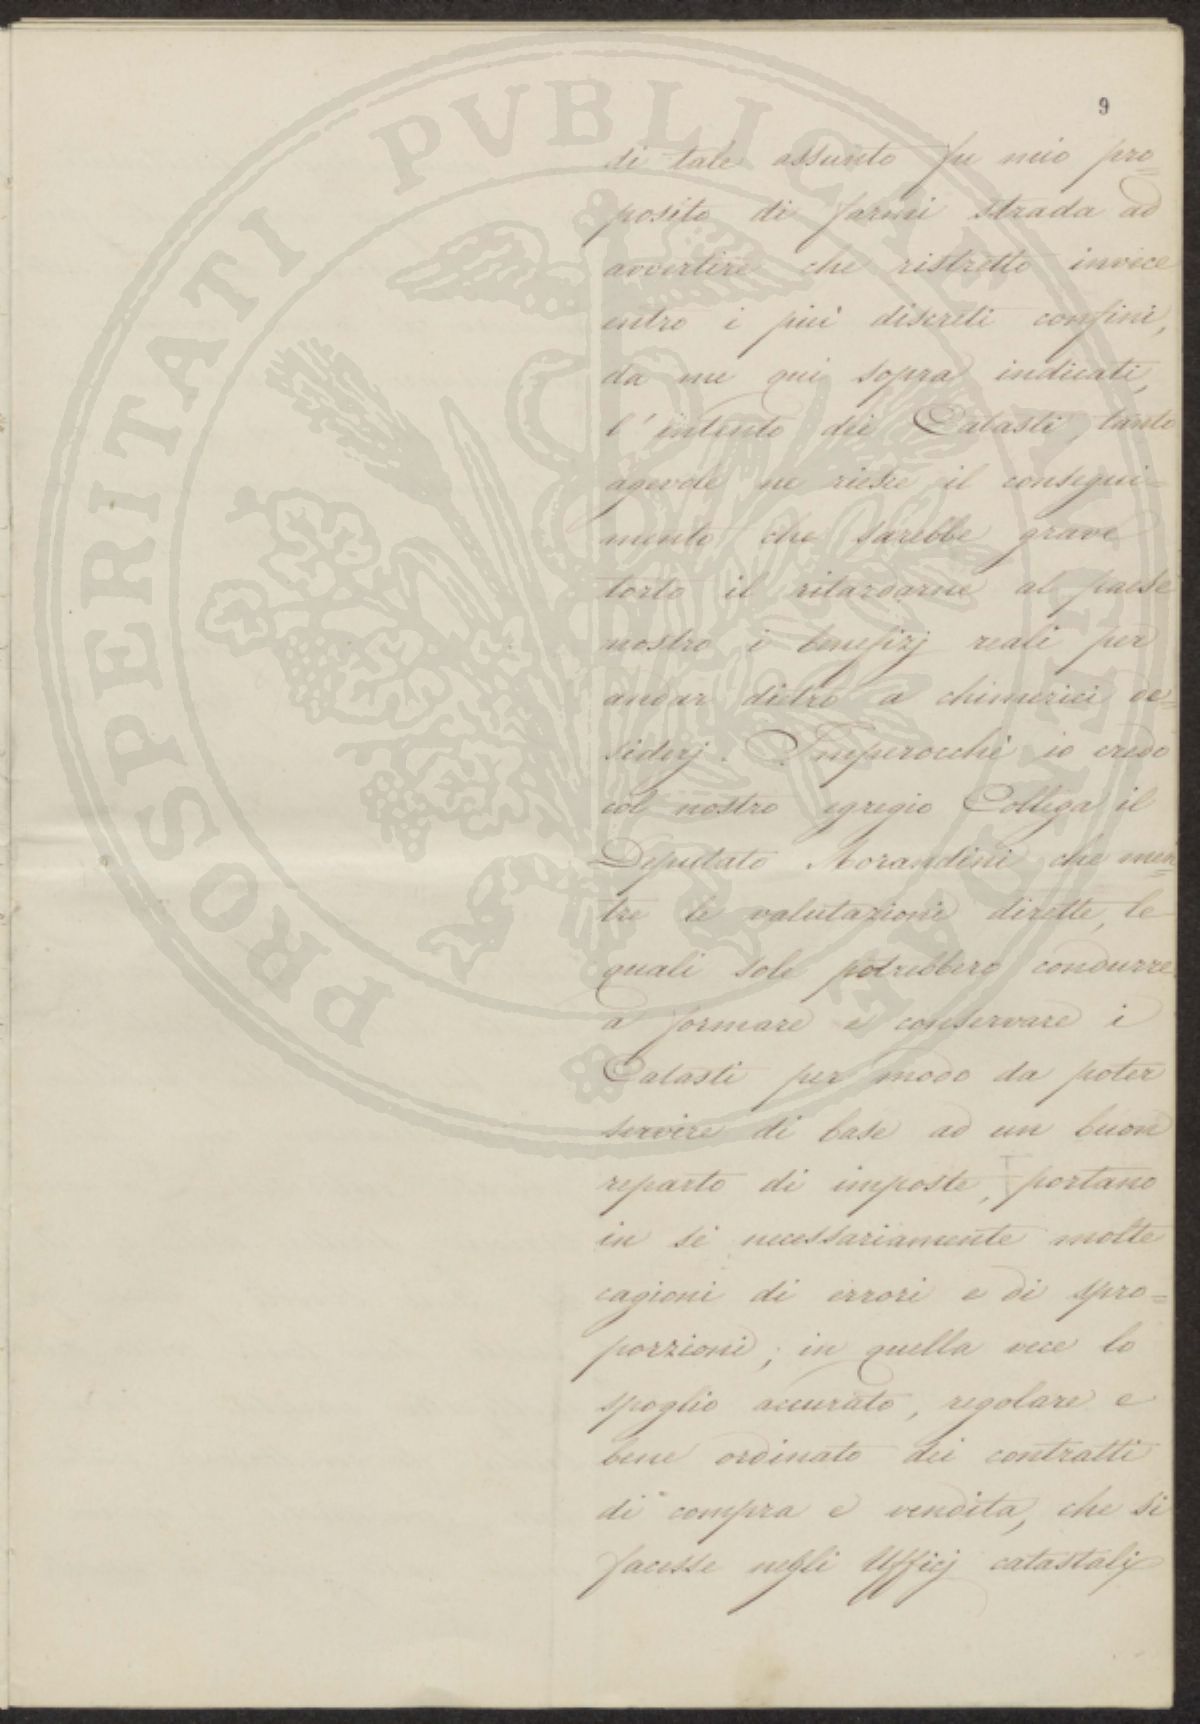 9
di tale assunto fu mio pro=
posito di farmi strada ad
avvertire che ristretto invece
entro i più discreti confini,
da me qui sopra indicati,
l'intento dei Catasti, tanto
agevole ne riesce il consegui=
mento che sarebbe grave
torto il ritardarne al paese
nostro i benefizj reali per
andar dietro a chimerici de=
siderj. Imperocchè io credo
col nostro egregio Collega il
Deputato Morandini che men=
tre le valutazioni dirette, le
quali sole potrebbero condurre
a formare e conservare i
Catasti per modo da poter
servire di base ad un buon
reparto di imposte, portano
in sé necessariamente molte
cagioni di errori e di spro=
porzioni; in quella vece lo
spoglio accurato, regolare e
bene ordinato dei contratti
di compra e vendita, che si
facesse negli Ufficj catastali
PROSPERITATI PVBLICAE AVGENDAE